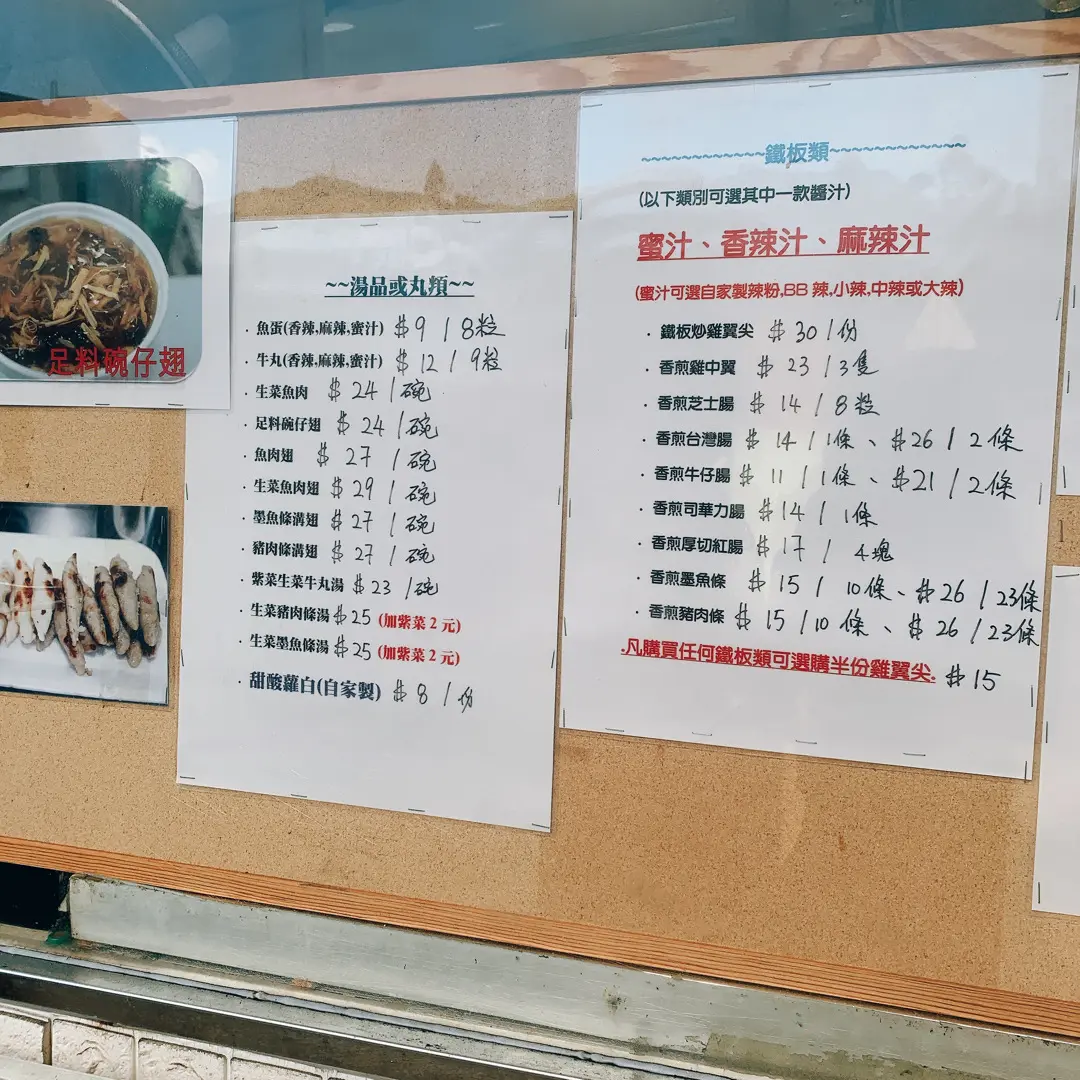 足料碗仔翅
~~湯品或丸類~~
· 魚蛋(香辣,麻辣,蜜汁) $9 / 8粒
· 牛丸(香辣,麻辣,蜜汁) $12 / 9粒
· 生菜魚肉 $24 / 碗
· 足料碗仔翅 $24 / 碗
· 魚肉翅 $27 / 碗
· 生菜魚肉翅 $29 / 碗
· 墨魚條溝翅 $27 / 碗
· 豬肉條溝翅 $27 / 碗
· 紫菜生菜牛丸湯 $23 / 碗
· 生菜豬肉條湯 $25 (加紫菜 2 元)
· 生菜墨魚條湯 $25 (加紫菜 2 元)
· 甜酸蘿白(自家製) $8 / 份
~~~~~~~~~~~~鐵板類~~~~~~~~~~~~~
(以下類別可選其中一款醬汁)
蜜汁、香辣汁、麻辣汁
(蜜汁可選自家製辣粉,BB 辣,小辣,中辣或大辣)
· 鐵板炒雞翼尖 $30 / 份
· 香煎雞中翼 $23 / 3隻
· 香煎芝士腸 $14 / 8粒
· 香煎台灣腸 $14 / 1條、$26 / 2條
· 香煎牛仔腸 $11 / 1條、$21 / 2條
· 香煎司華力腸 $14 / 1條
· 香煎厚切紅腸 $17 / 4塊
· 香煎墨魚條 $15 / 10條、$26 / 23條
· 香煎豬肉條 $15 / 10條、$26 / 23條
.凡購買任何鐵板類可選購半份雞翼尖. $15